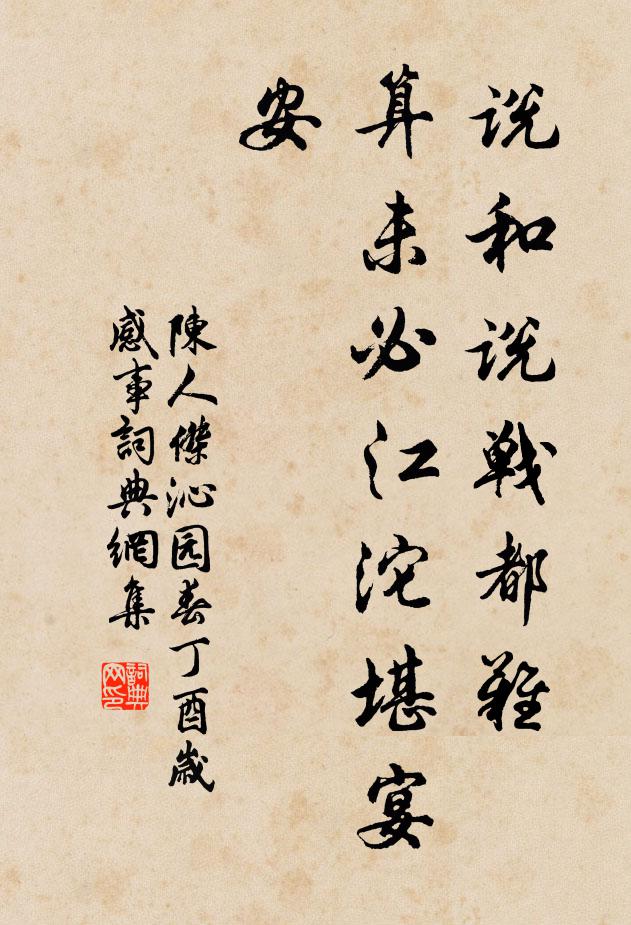 说和说戦都難
算未必江沱堪宴
安
陳人傑沁园春丁酉歳
感事詞典網集
詞典网印